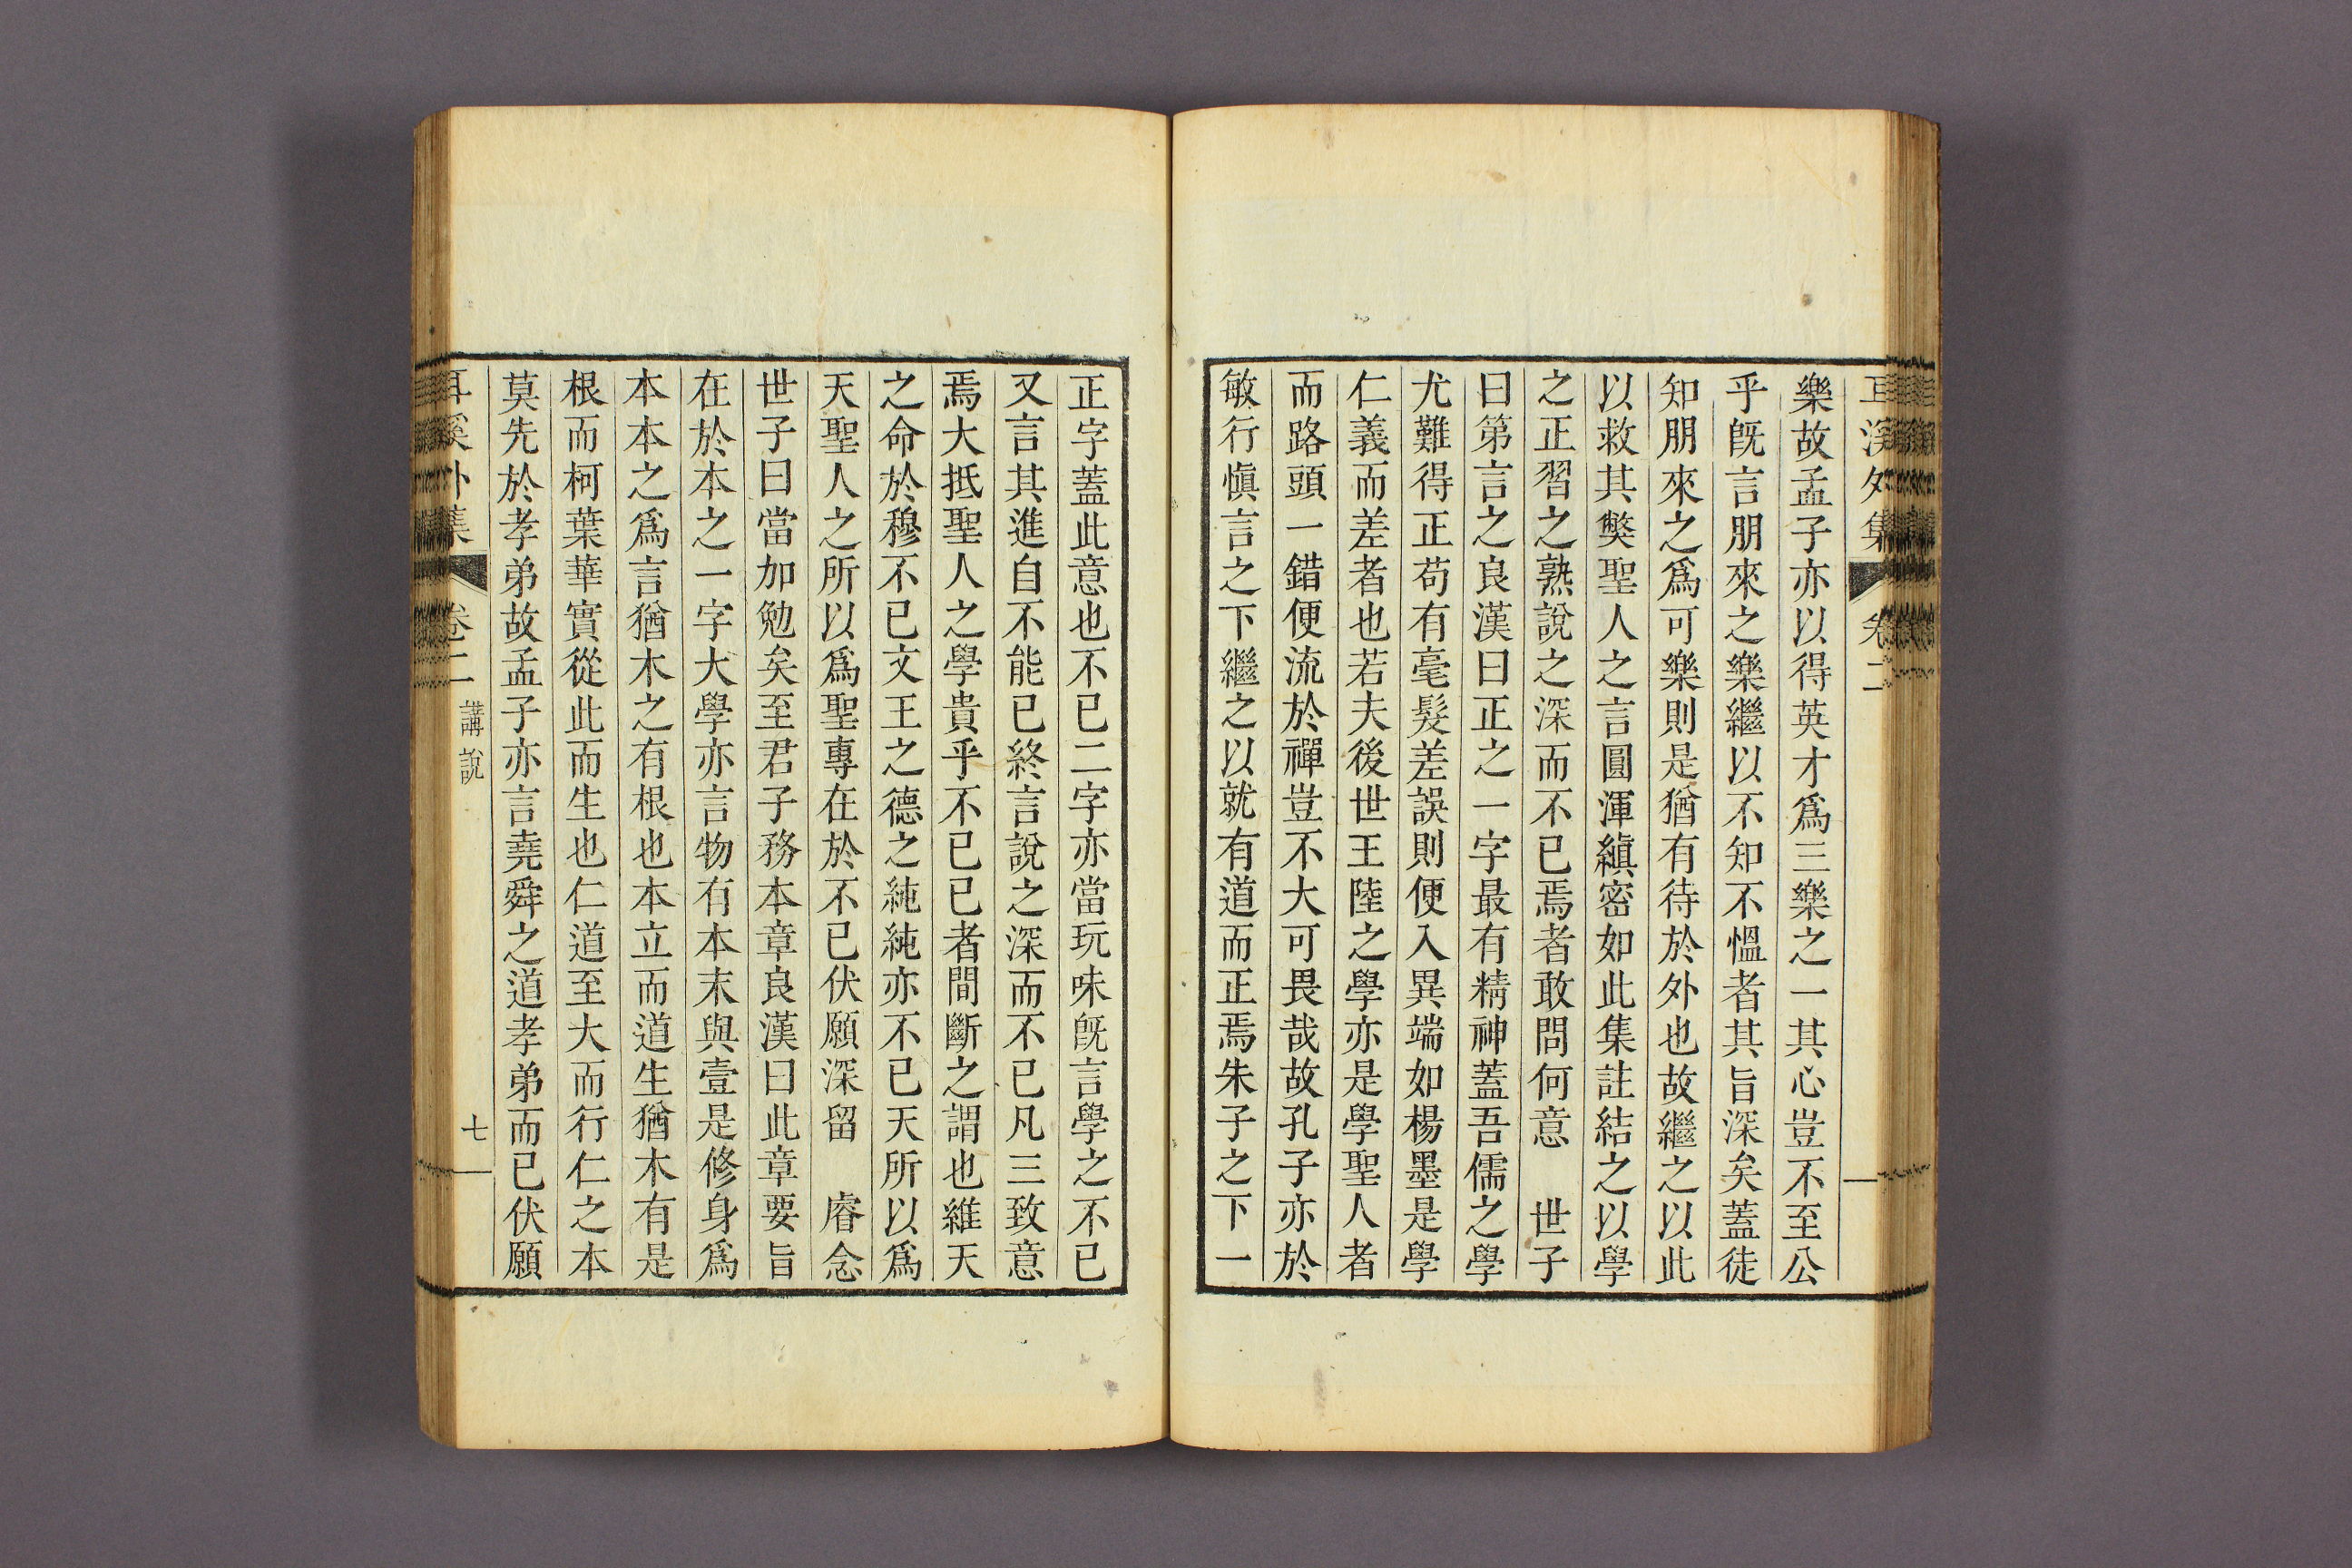 耳溪外集 卷二
樂故孟子亦以得英才爲三樂之一其心豈不至公
乎旣言朋來之樂繼以不知不慍者其旨深矣蓋徒
知朋來之爲可樂則是猶有待於外也故繼之以此
以救其獘聖人之言圓渾縝密如此集註結之以學
之正習之熟說之深而不已焉者敢問何意　世子
曰第言之良漢曰正之一字最有精神蓋吾儒之學
尤難得正苟有毫髮差誤則便入異端如楊墨是學
仁義而差者也若夫後世王陸之學亦是學聖人者
而路頭一錯便流於禪豈不大可畏哉故孔子亦於
敏行愼言之下繼之以就有道而正焉朱子之下一
正字蓋此意也不已二字亦當玩味旣言學之不已
又言其進自不能已終言說之深而不已凡三致意
焉大抵聖人之學貴乎不已已者間斷之謂也維天
之命於穆不已文王之德之純純亦不已天所以爲
天聖人之所以爲聖專在於不已伏願深留　睿念
世子曰當加勉矣至君子務本章良漢曰此章要旨
在於本之一字大學亦言物有本末與壹是修身爲
本本之爲言猶木之有根也本立而道生猶木有是
根而柯葉華實從此而生也仁道至大而行仁之本
莫先於孝弟故孟子亦言堯舜之道孝弟而已伏願
耳溪外集 卷二 講說 七